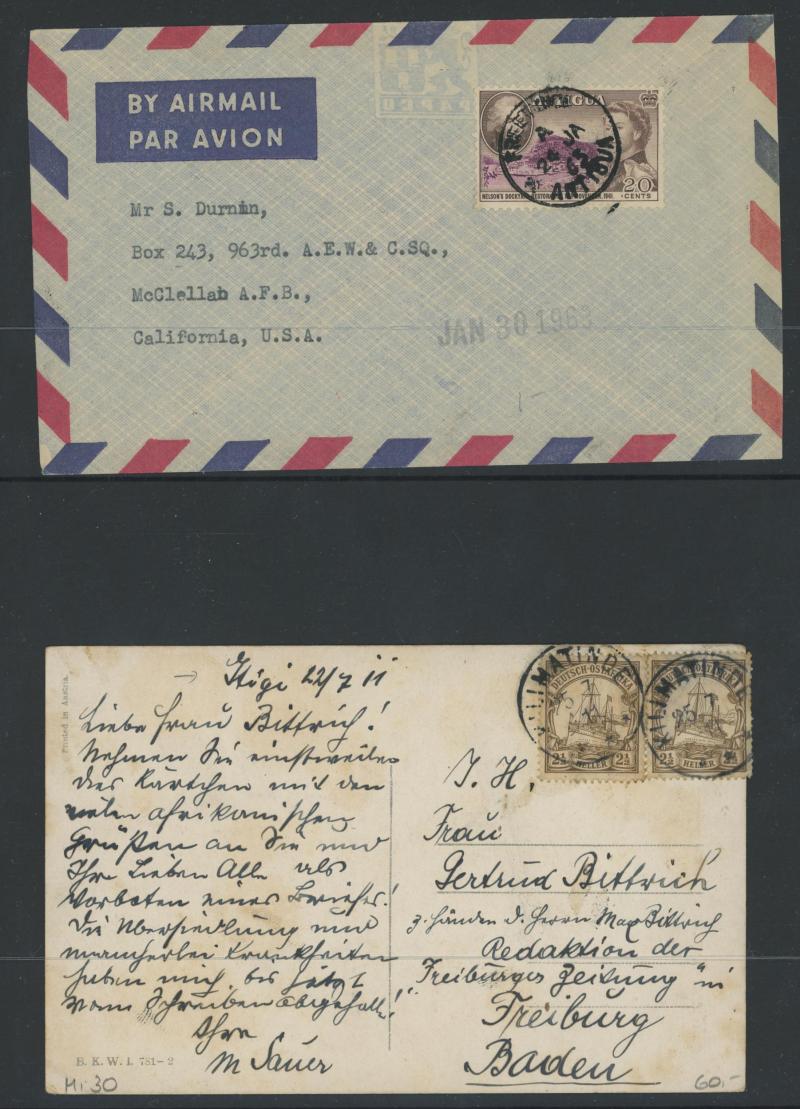 BY AIRMAIL
PAR AVION
ANTIGUA
A
24 JA
63
ANTIGUA
20
CENTS
Mr S. Durnin,
Box 243, 963rd. A.E.W.& C.SQ.,
McClellab A.F.B.,
California, U.S.A.
JAN 30 1963
Printed in Austria.
Itigi 22/7 11
Liebe Frau Bittrich!
Nehmen Sie einstweilen
das Kärtchen mit den
vielen afrikanischen
Grüßen an Sie und
Ihre Lieben Alle als
Vorboten eines Briefes!
Die Übersiedlung und
mancherlei Krankheiten
haben mich bis jetzt
vom Schreiben abgehalten!
Ihre
M Sauer
B. K. W. I. 781-2
Mi 30
KILIMATINDE
DEUTSCH-OSTAFRIKA
2½ HELLER 2½
KILIMATINDE
25 7
2½ HELLER 2½
I. H.
Frau
Gertrud Bittrich
z. Händen d. Herrn Max Bittrich
Redaktion der
"Freiburger Zeitung" in
Freiburg
Baden
60.-